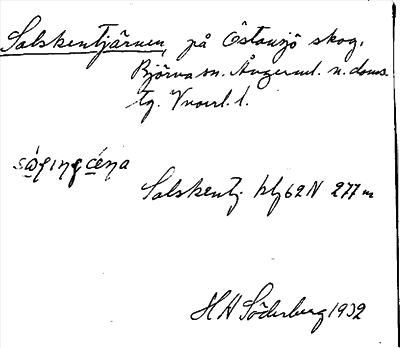 Salskentjärnen, på Östansjö skog,
Björna sn. Ångerml. n. doms.
tg. Vnorrl. l.
Salskentj. blj 62 N 277 m
H H Söderberg 1932